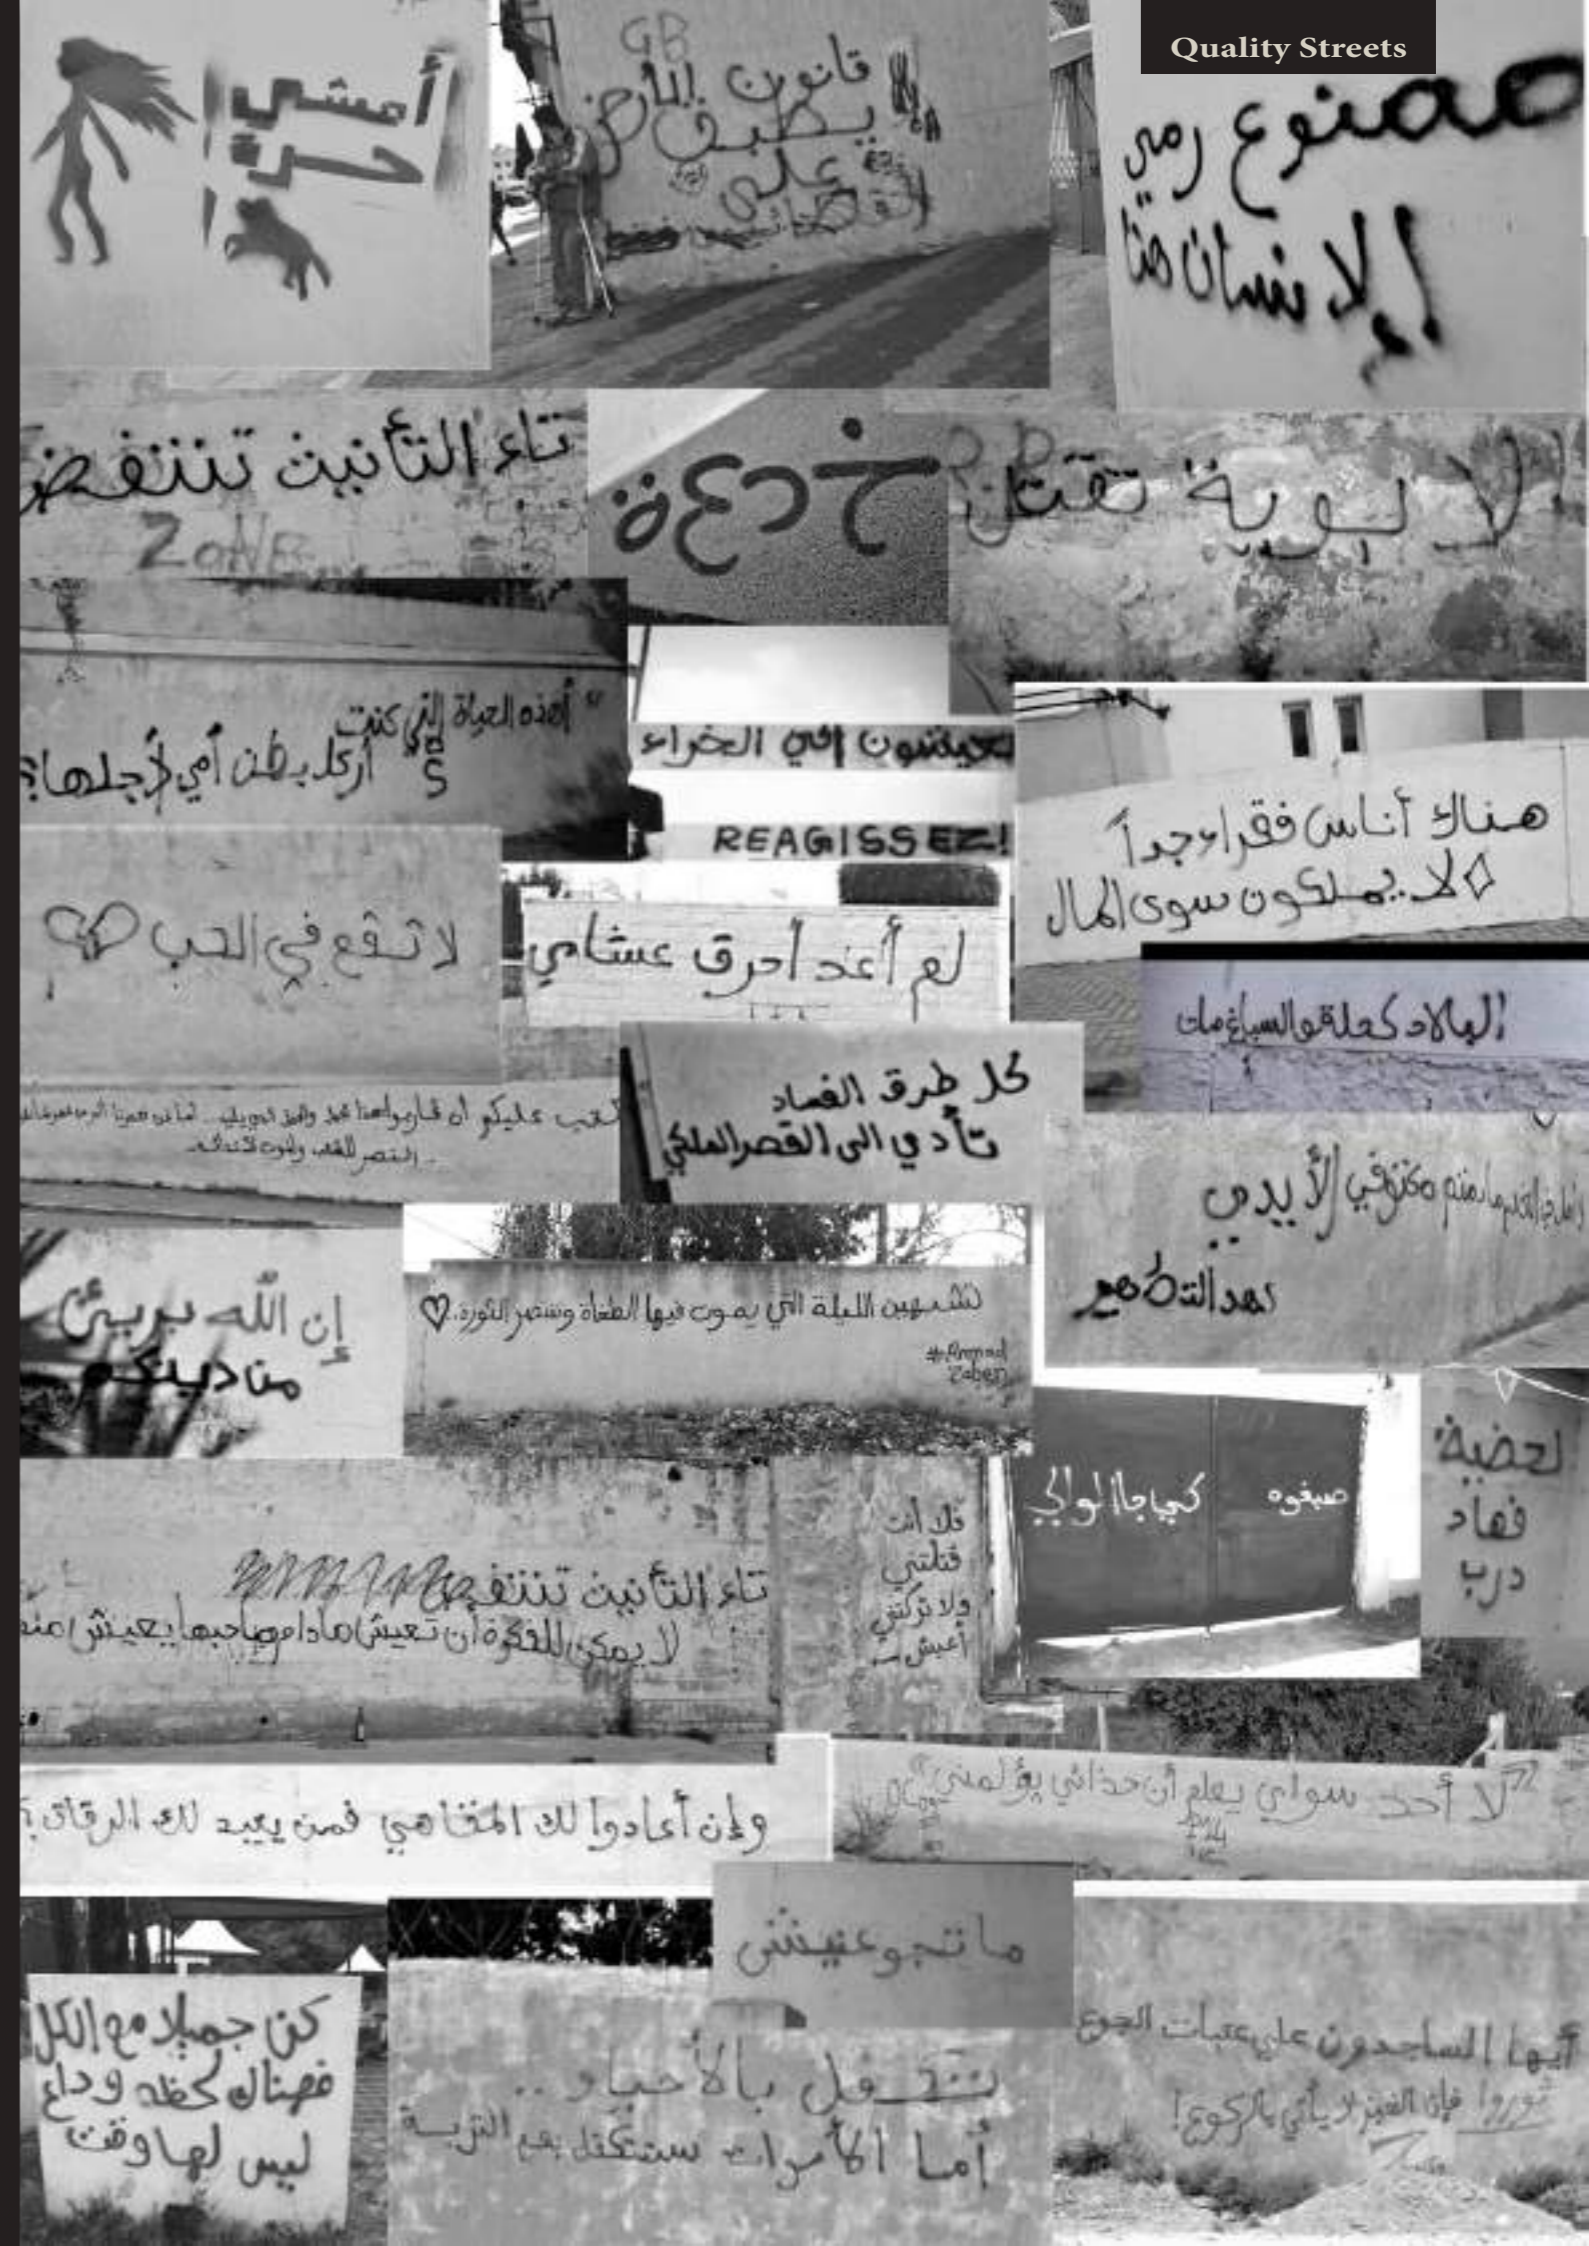 Quality Streets
أمشي
حرة
GB
قانون الأرض
يطبق
على
ممنوع رمي
الإنسان هنا
تاء التأنيث تنتفض
ZONE
خدعة
لا بوية تقتل
"أهذه الحياة التي كنت
أركل بطن أمي لأجلها؟"
تعيشون في الخراء
REAGISSEZ!
هناك أناس فقراء جداً
لا يملكون سوى المال
لا تقع في الحب
لم أعد أحرق عشائي
البلاد كحلة والسباغ مات
كل طرق الفساد
تأدي الى القصر الملكي
عليكم أن
مكتوفي الأيدي
إن الله بريئ
من دينكم
تشبهين الليلة التي يموت فيها الطغاة وتنتصر الثورة.
#Ahmad
Zaben
صبغوه كي جا الوالي
لحضية
فهاد
درب
تاء التأنيث تنتفض
لا يمكن للفكرة أن تعيش مادام صاحبها يعيش منها
فلا أنت
قتلتني
ولا تركتني
أعيش
وإن أعادوا لك المقاهي فمن يعيد لك الرفاق؟
"لا أحد سواي يعلم أن حذائي يؤلمني"
ما تجوعنيش
كن جميلا مع الكل
فهناك لحظة وداع
ليس لها وقت
بالأحياء ..
أما الأموات ستتكفل بهم التربة
أيها الساجدون على عتبات الجوع
ثوروا فإن الخبز لا يأتي بالركوع!